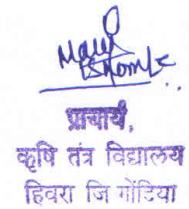 प्राचार्य,
कृषि तंत्र विद्यालय
हिवरा जि गोंदिया